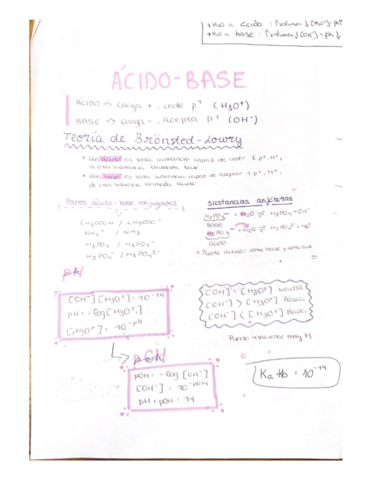 +H2O a ácido : ↑volumen ↓[H3O+] ·pH↑
+H2O a base : ↑volumen ↓[OH-] = pH ↓
ÁCIDO-BASE
ÁCIDO => carga +, cede p+ (H3O+)
BASE => carga -, acepta p+ (OH-)
Teoría de Brönsted-Lowry
• Un ácido es toda sustancia capaz de ceder 1 p+, H+,
a otra sustancia llamada base
• Una base es toda sustancia capaz de aceptar 1 p+, H+,
de otra sustancia llamada ácido
Pares ácido-base conjugados
CH3COOH / CH3COO-
NH4+ / NH3
H3PO4 / H2PO4-
H2PO4- / HPO4 2-
Sustancias anfóteras
H2PO4- + H2O ⇌ H3PO4 + OH-
Base
H2PO4- + H2O ⇌ HPO4 2- +
ácido
• Puede actuar como base y
pH
[OH-][H3O+] = 10^-14
pH = -log[H3O+]
[H3O+] = 10^-pH
[OH-] = [H3O+] Neutra
[OH-] > [H3O+] Básica
[OH-] < [H3O+] Ácida
pOH
pOH = -log [OH-]
[OH-] = 10^-pOH
pH + pOH = 14
M
Ka·Kb = 10^-14